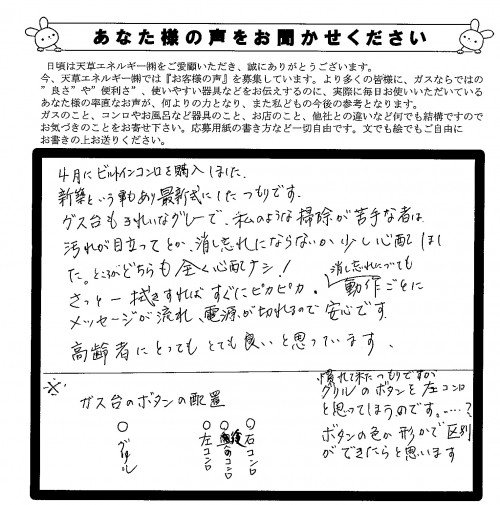 あなた様の声をお聞かせください
日頃は天草エネルギー㈱をご愛顧いただき、誠にありがとうございます。
今、天草エネルギー㈱では『お客様の声』を募集しています。より多くの皆様に、ガスならではの
”良さ”や”便利さ”、使いやすい器具などをお伝えするのに、実際に毎日お使いいただいている
あなた様の率直なお声が、何よりの力となり、また私どもの今後の参考となります。
ガスのこと、コンロやお風呂など器具のこと、お店のこと、他社との違いなど何でも結構ですので
お気づきのことをお寄せ下さい。応募用紙の書き方など一切自由です。文でも絵でもご自由に
お書きの上お送りください。
4月にビルトインコンロを購入しました。
新築という事もあり最新式にしたつもりです。
ガス台もきれいなグレーで、私のような掃除が苦手な者は
汚れが目立ってとか、消し忘れにならないか少し心配でし
た。ところがどちらも全く心配ナシ!
さっと一拭きすればすぐにピカピカ。消し忘れについても動作ごとに
メッセージが流れ、電源が切れるので安心です。
高齢者にとってもとても良いと思っています、
※
ガス台のボタンの配置
○グリル
○左コンロ
○後のコンロ
○右コンロ
慣れて来たつもりですが
グリルのボタンを左コンロ
と思ってしまうのです。……?
ボタンの色か形かで区別
ができたらと思います